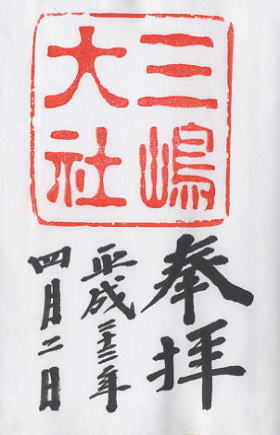 三嶋
大社
奉拝
平成二十三年
四月二日